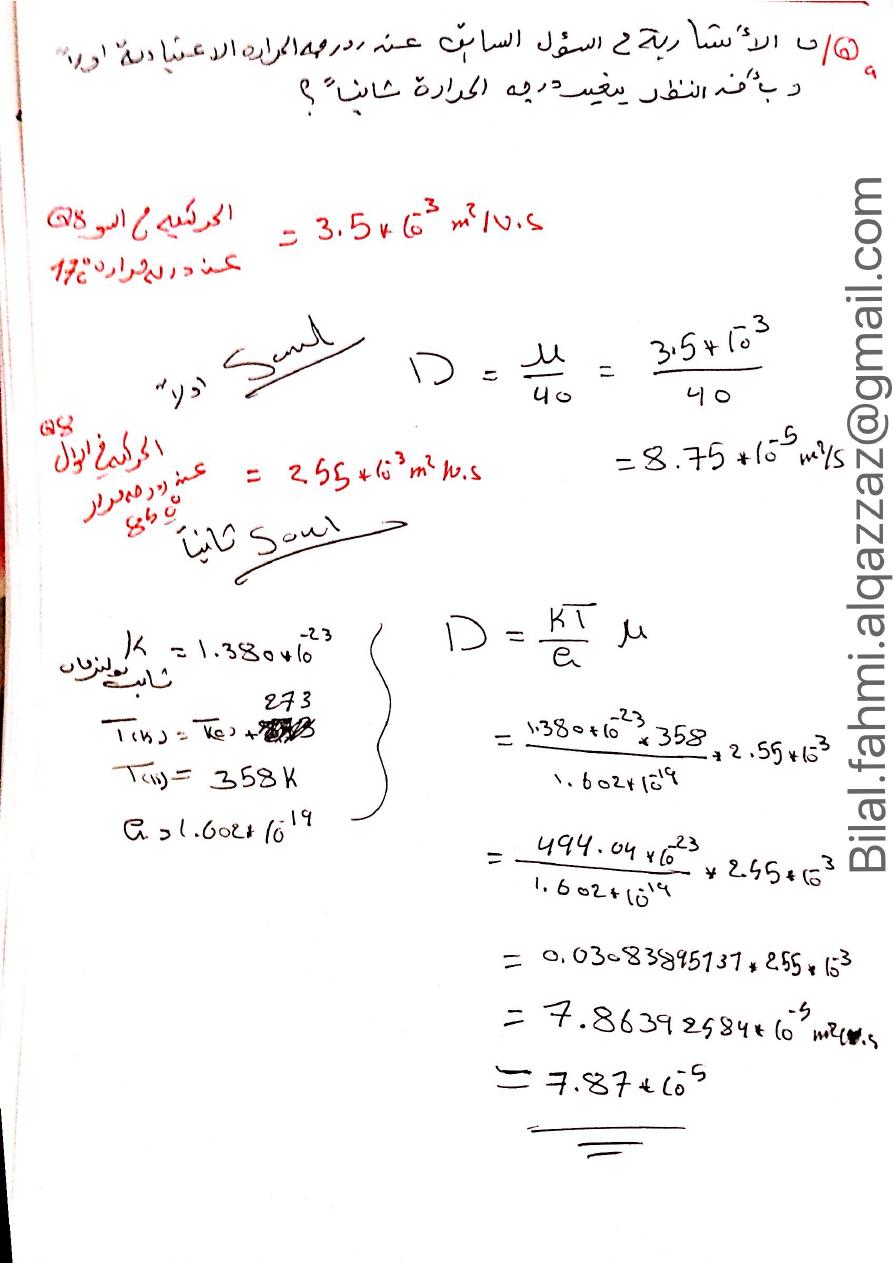 Q9/ الأنتشارية في السؤل السابق عند درجه الحراره الاعتيادية اولاً
و بأخذ النظر بتغير درجه الحرارة ثانياً؟
الحركيه في السو Q8
عند درجه حراره 17°C
= 3.5*10^-3 m²/v.s
اولاً Soul
D = μ/40 = 3.5*10^-3/40
= 8.75*10^-5 m²/s
Q8
عند درجه حرار
85°C
= 2.55*10^-3 m²/v.s
ثانياً Soul
D = KT/e μ
ثابت بولتزمان K = 1.380*10^-23
T(K) = T(c) + 273
T(K) = 358 K
e = 1.602*10^-19
= 1.380*10^-23*358/1.602*10^-19 * 2.55*10^-3
= 494.04*10^-23/1.602*10^-19 * 2.55*10^-3
= 0.03083895131*2.55*10^-3
= 7.863932584*10^-5 m²/v.s
= 7.87*10^-5
Bilal.fahmi.alqazzaz@gmail.com